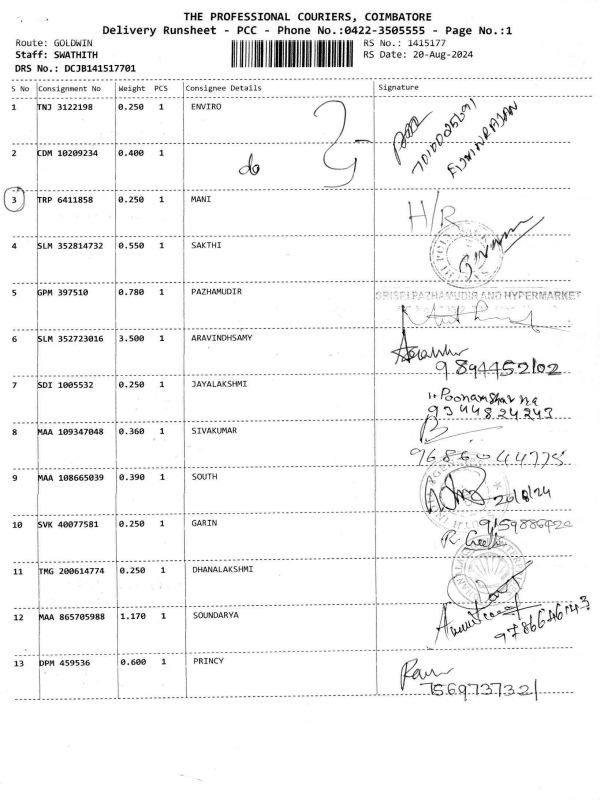 THE PROFESSIONAL COURIERS, COIMBATORE
Delivery Runsheet - PCC - Phone No.:0422-3505555 - Page No.:1
Route: GOLDWIN RS No.: 1415177
Staff: SWATHITH RS Date: 20-Aug-2024
DRS No.: DCJB141517701
S No Consignment No Weight PCS Consignee Details Signature
1 TNJ 3122198 0.250 1 ENVIRO
2 CDM 10209234 0.400 1 do
3 TRP 6411858 0.250 1 MANI H/R
4 SLM 352814732 0.550 1 SAKTHI
5 GPM 397510 0.780 1 PAZHAMUDIR
PAZHAMUDIR AND HYPERMARKET
6 SLM 352723016 3.500 1 ARAVINDHSAMY
9894452102
7 SDI 1005532 0.250 1 JAYALAKSHMI
9344824243
8 MAA 109347048 0.360 1 SIVAKUMAR
9686044775
9 MAA 108665039 0.390 1 SOUTH 20/8/24
10 SVK 40077581 0.250 1 GARIN
11 TMG 200614774 0.250 1 DHANALAKSHMI
12 MAA 865705988 1.170 1 SOUNDARYA
9786646143
13 DPM 459536 0.600 1 PRINCY
7569737321